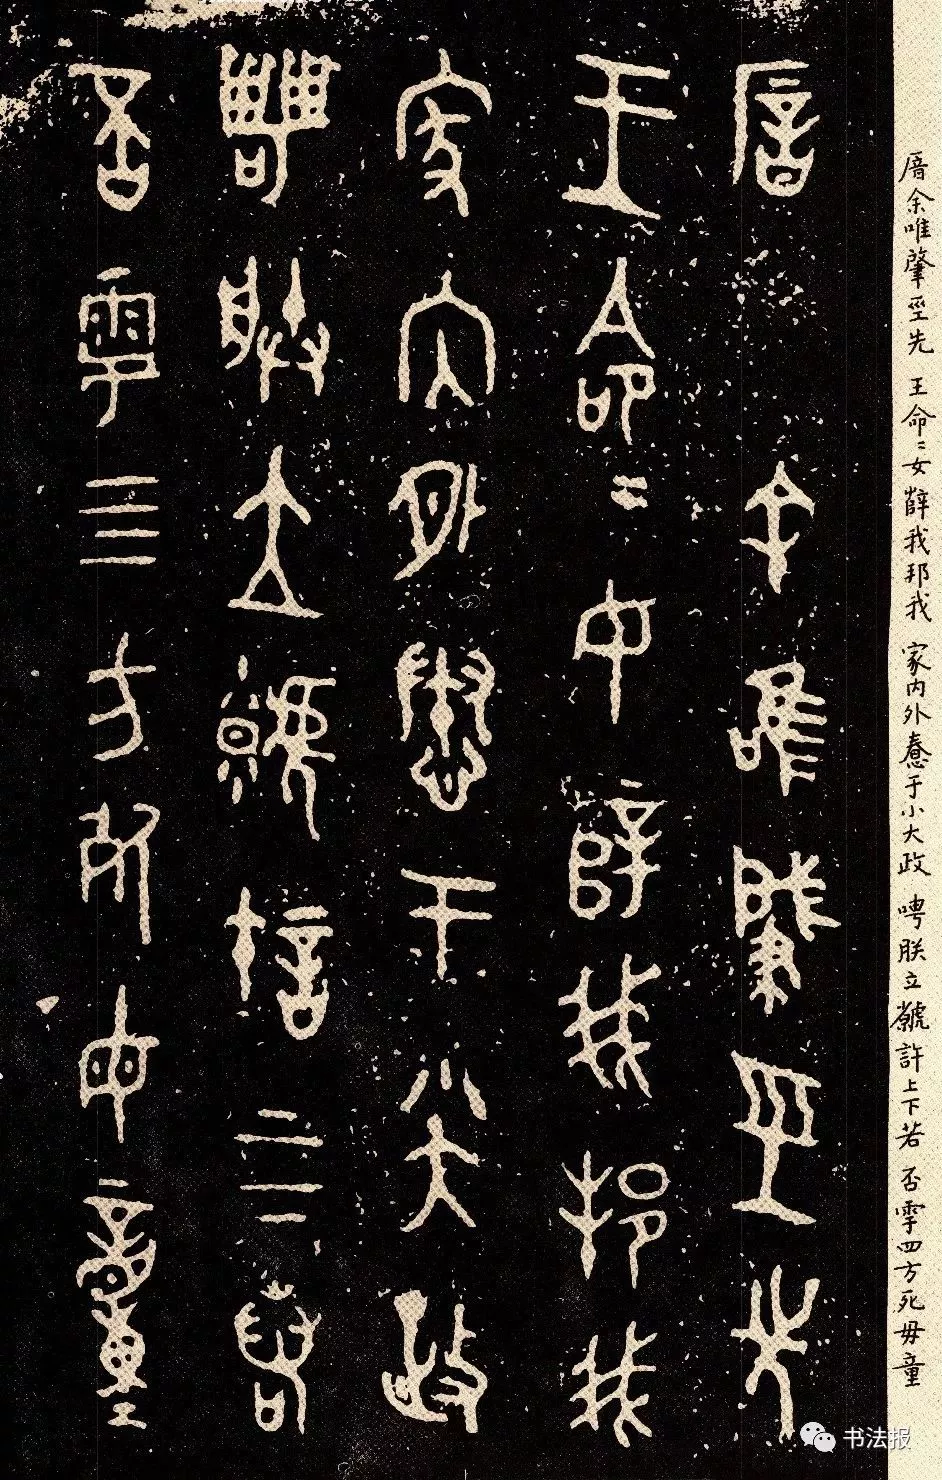 厝余唯肇巠先 王命〻女辥我邦我 家内外憃于小大政 甹朕立虩許上下若 否雩四方死毋童
厝余唯肇巠先
王命〻女辥我邦我
家内外憃于小大政
甹朕立虩許上下若
否雩四方死毋童
书法报